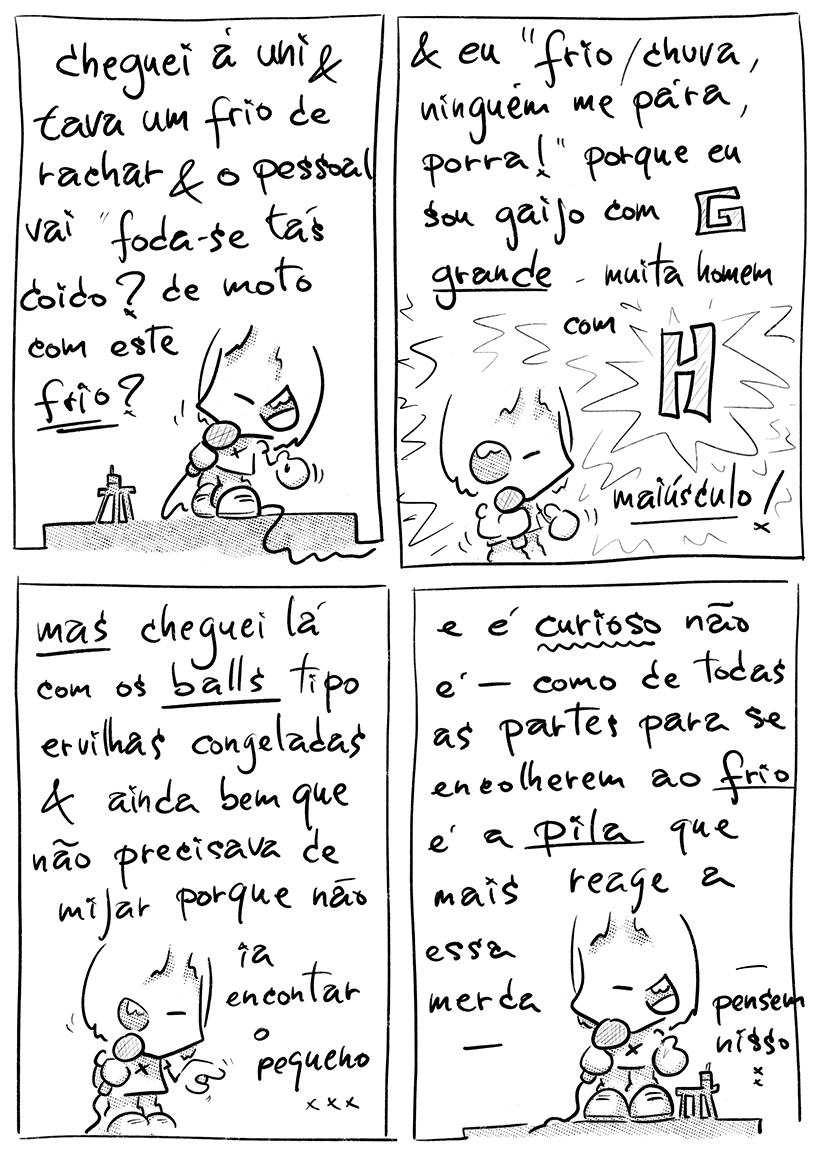 cheguei à uni &
tava um frio de
rachar & o pessoal
vai "foda-se tás
doido? de moto
com este
frio?
& eu "frio/chuva,
ninguém me pára,
porra!" porque eu
sou gaijo com G
grande - muita homem
com
H
maiúsculo!
mas cheguei lá
com os balls tipo
ervilhas congeladas
& ainda bem que
não precisava de
mijar porque não
ia
encontar
o
pequeno
xxx
e é curioso não
é — como de todas
as partes para se
encolherem ao frio
é a pila que
mais reage a
essa
merda
—
— pensem
nisso